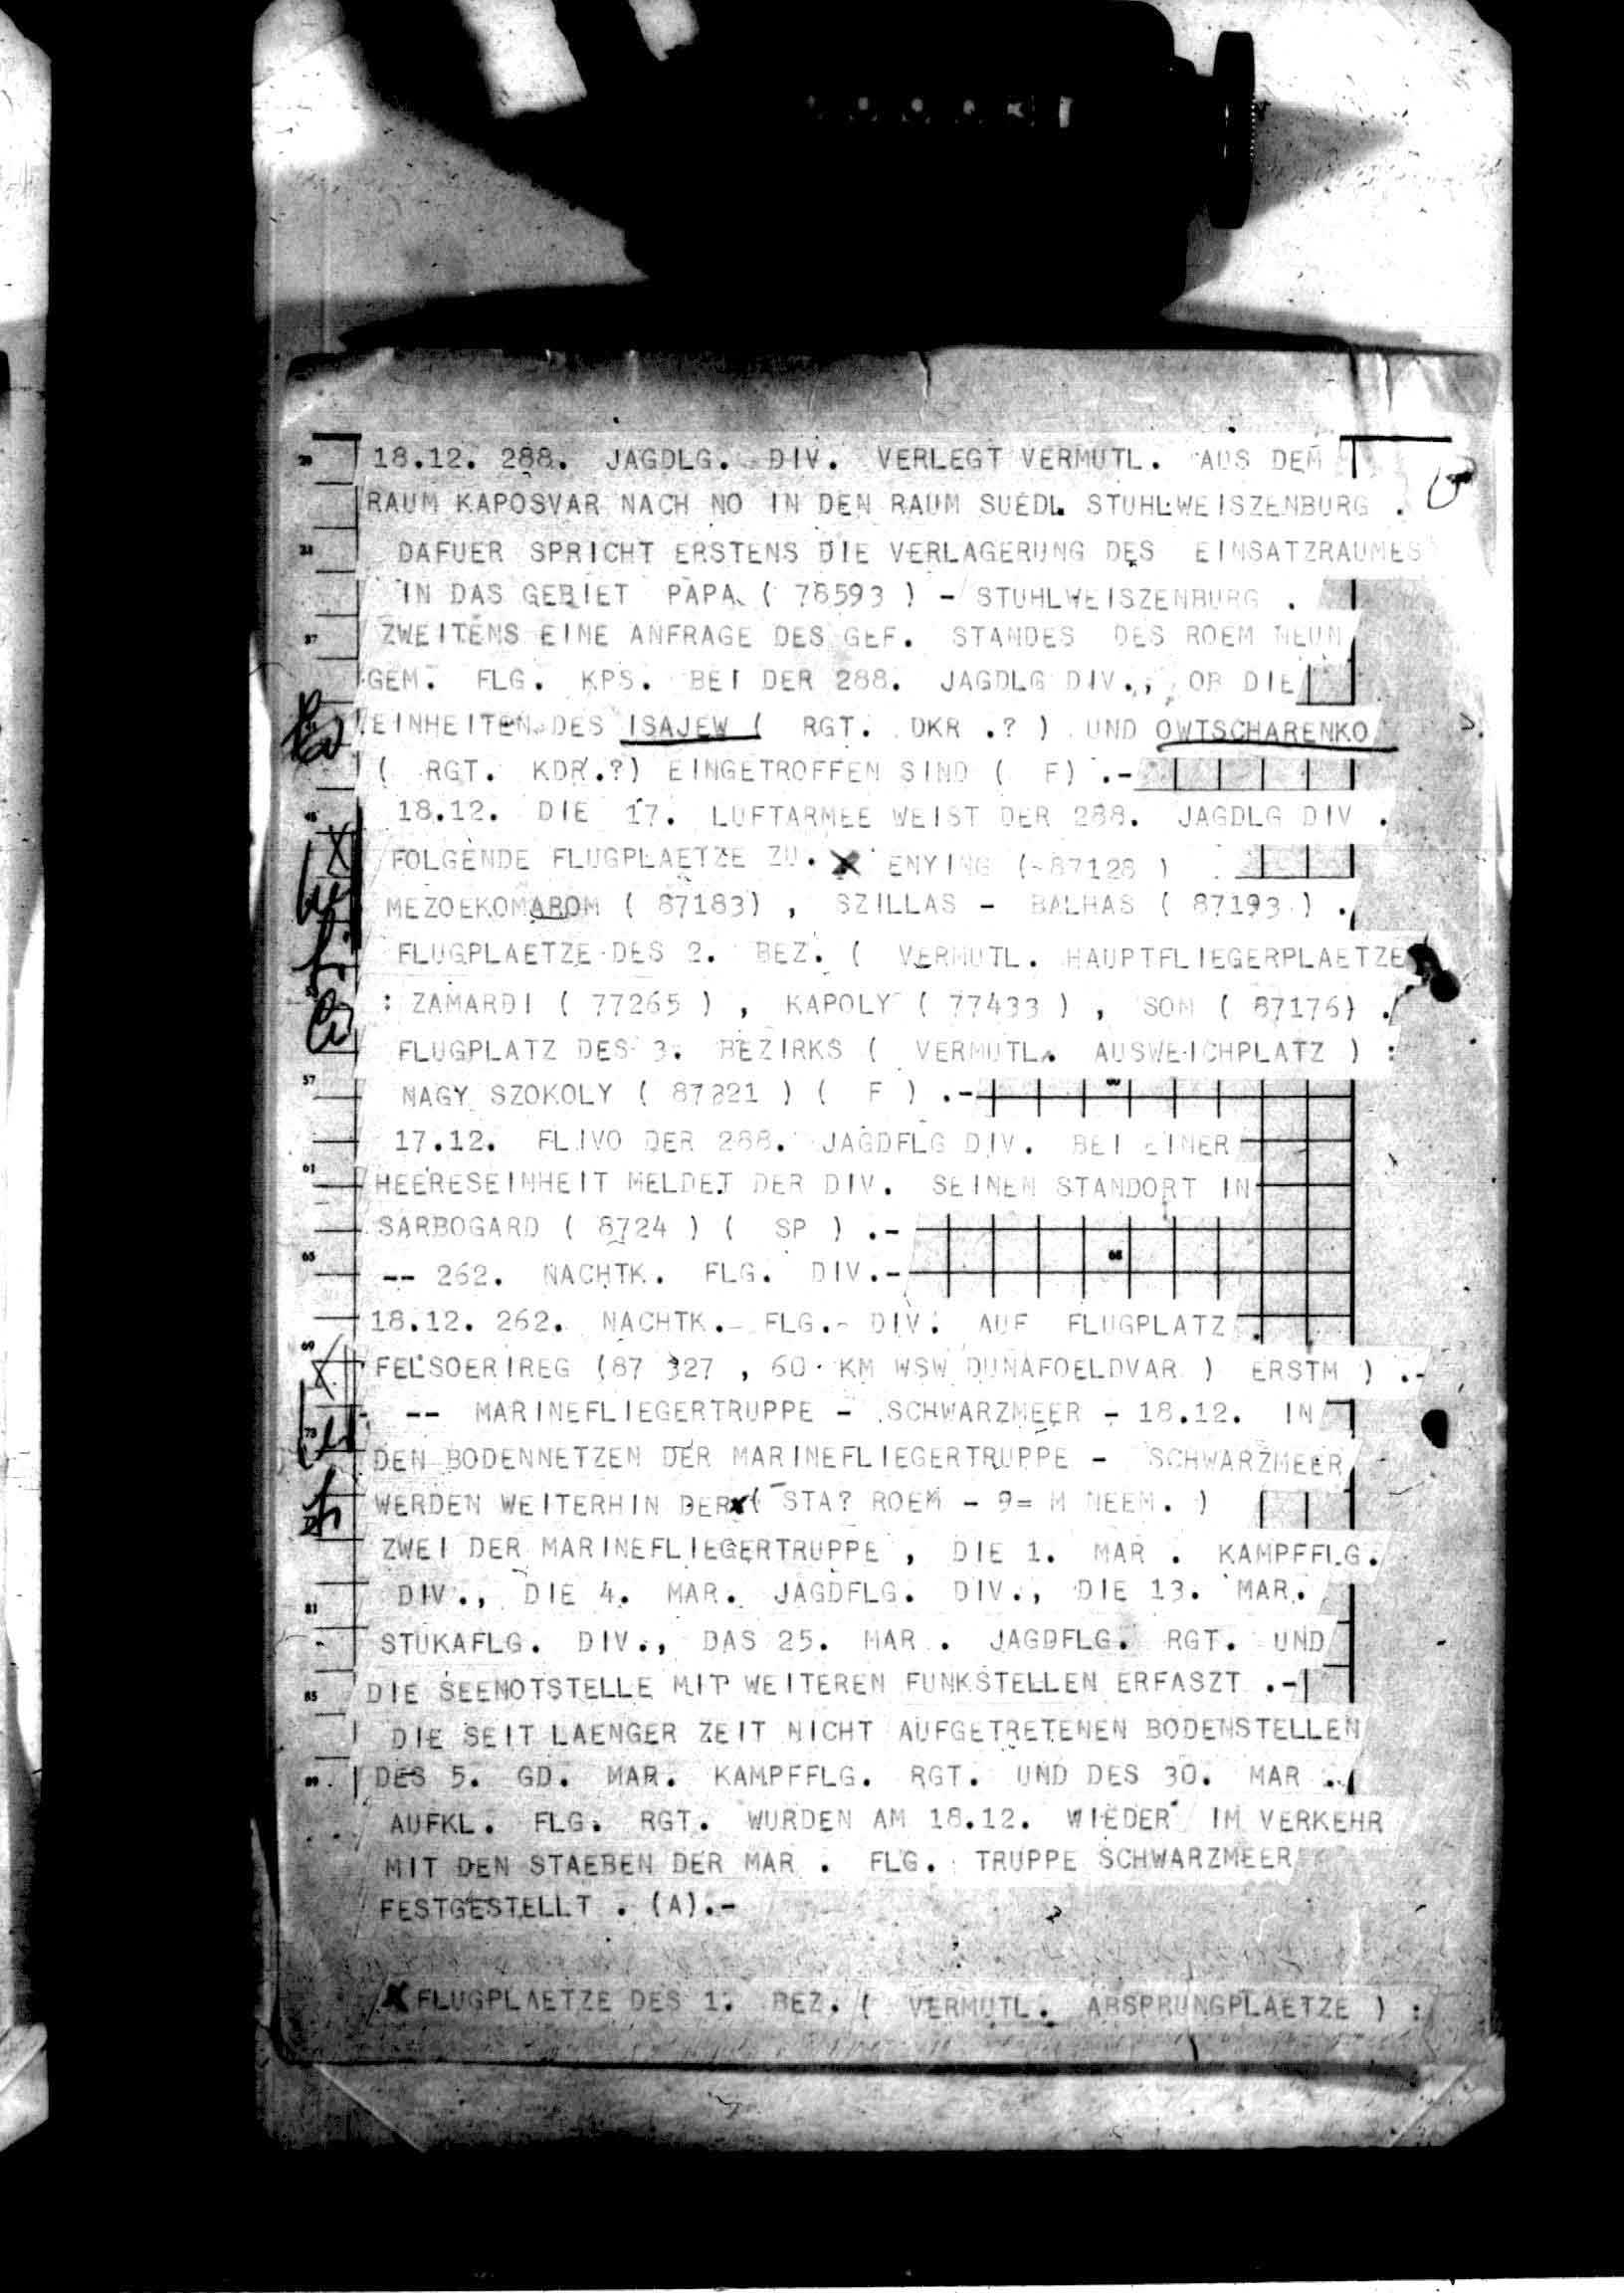 18.12. 288. JAGDLG. DIV. VERLEGT VERMUTL. AUS DEM
RAUM KAPOSVAR NACH NO IN DEN RAUM SUEDL. STUHLWEISZENBURG .
DAFUER SPRICHT ERSTENS DIE VERLAGERUNG DES EINSATZRAUMES
IN DAS GEBIET PAPA ( 78593 ) - STUHLWEISZENBURG .
ZWEITENS EINE ANFRAGE DES GEF. STANDES DES ROEM NEUN
GEM. FLG. KPS. BEI DER 288. JAGDLG DIV., OB DIE
EINHEITEN DES ISAJEW ( RGT. DKR .? ) UND OWTSCHARENKO
( RGT. KDR.?) EINGETROFFEN SIND ( F) .-
18.12. DIE 17. LUFTARMEE WEIST DER 288. JAGDLG DIV .
FOLGENDE FLUGPLAETZE ZU. X ENYING (-87128 )
MEZOEKOMAROM ( 87183) , SZILLAS - BALHAS ( 87193 ) .
FLUGPLAETZE DES 2. BEZ. ( VERMUTL. HAUPTFLIEGERPLAETZE
: ZAMARDI ( 77265 ) , KAPOLY ( 77433 ) , SOM ( 87176) .
FLUGPLATZ DES 3. BEZIRKS ( VERMUTL. AUSWEICHPLATZ ) :
NAGY SZOKOLY ( 87321 ) ( F ) .-
17.12. FLIVO DER 288. JAGDFLG DIV. BEI EINER
HEERESEINHEIT MELDET DER DIV. SEINEN STANDORT IN
SARBOGARD ( 8724 ) ( SP ) .-
-- 262. NACHTK. FLG. DIV.-
18.12. 262. NACHTK.- FLG.- DIV. AUF FLUGPLATZ
FELSOERIREG (87 327 , 60 KM WSW DUNAFOELDVAR ) ERSTM ) .-
-- MARINEFLIEGERTRUPPE - SCHWARZMEER - 18.12. IN
DEN BODENNETZEN DER MARINEFLIEGERTRUPPE - SCHWARZMEER
WERDEN WEITERHIN DER ( STA? ROEM - 9= M NEEM. )
ZWEI DER MARINEFLIEGERTRUPPE , DIE 1. MAR . KAMPFFLG.
DIV ., DIE 4. MAR. JAGDFLG. DIV., DIE 13. MAR.
STUKAFLG. DIV., DAS 25. MAR . JAGDFLG. RGT. UND
DIE SEENOTSTELLE MIT WEITEREN FUNKSTELLEN ERFASZT .-
DIE SEIT LAENGER ZEIT NICHT AUFGETRETENEN BODENSTELLEN
DES 5. GD. MAR. KAMPFFLG. RGT. UND DES 30. MAR .
AUFKL. FLG. RGT. WURDEN AM 18.12. WIEDER IM VERKEHR
MIT DEN STAEBEN DER MAR . FLG. TRUPPE SCHWARZMEER
FESTGESTELLT . (A).-
X FLUGPLAETZE DES 1. BEZ. ( VERMUTL. ABSPRUNGPLAETZE ) :